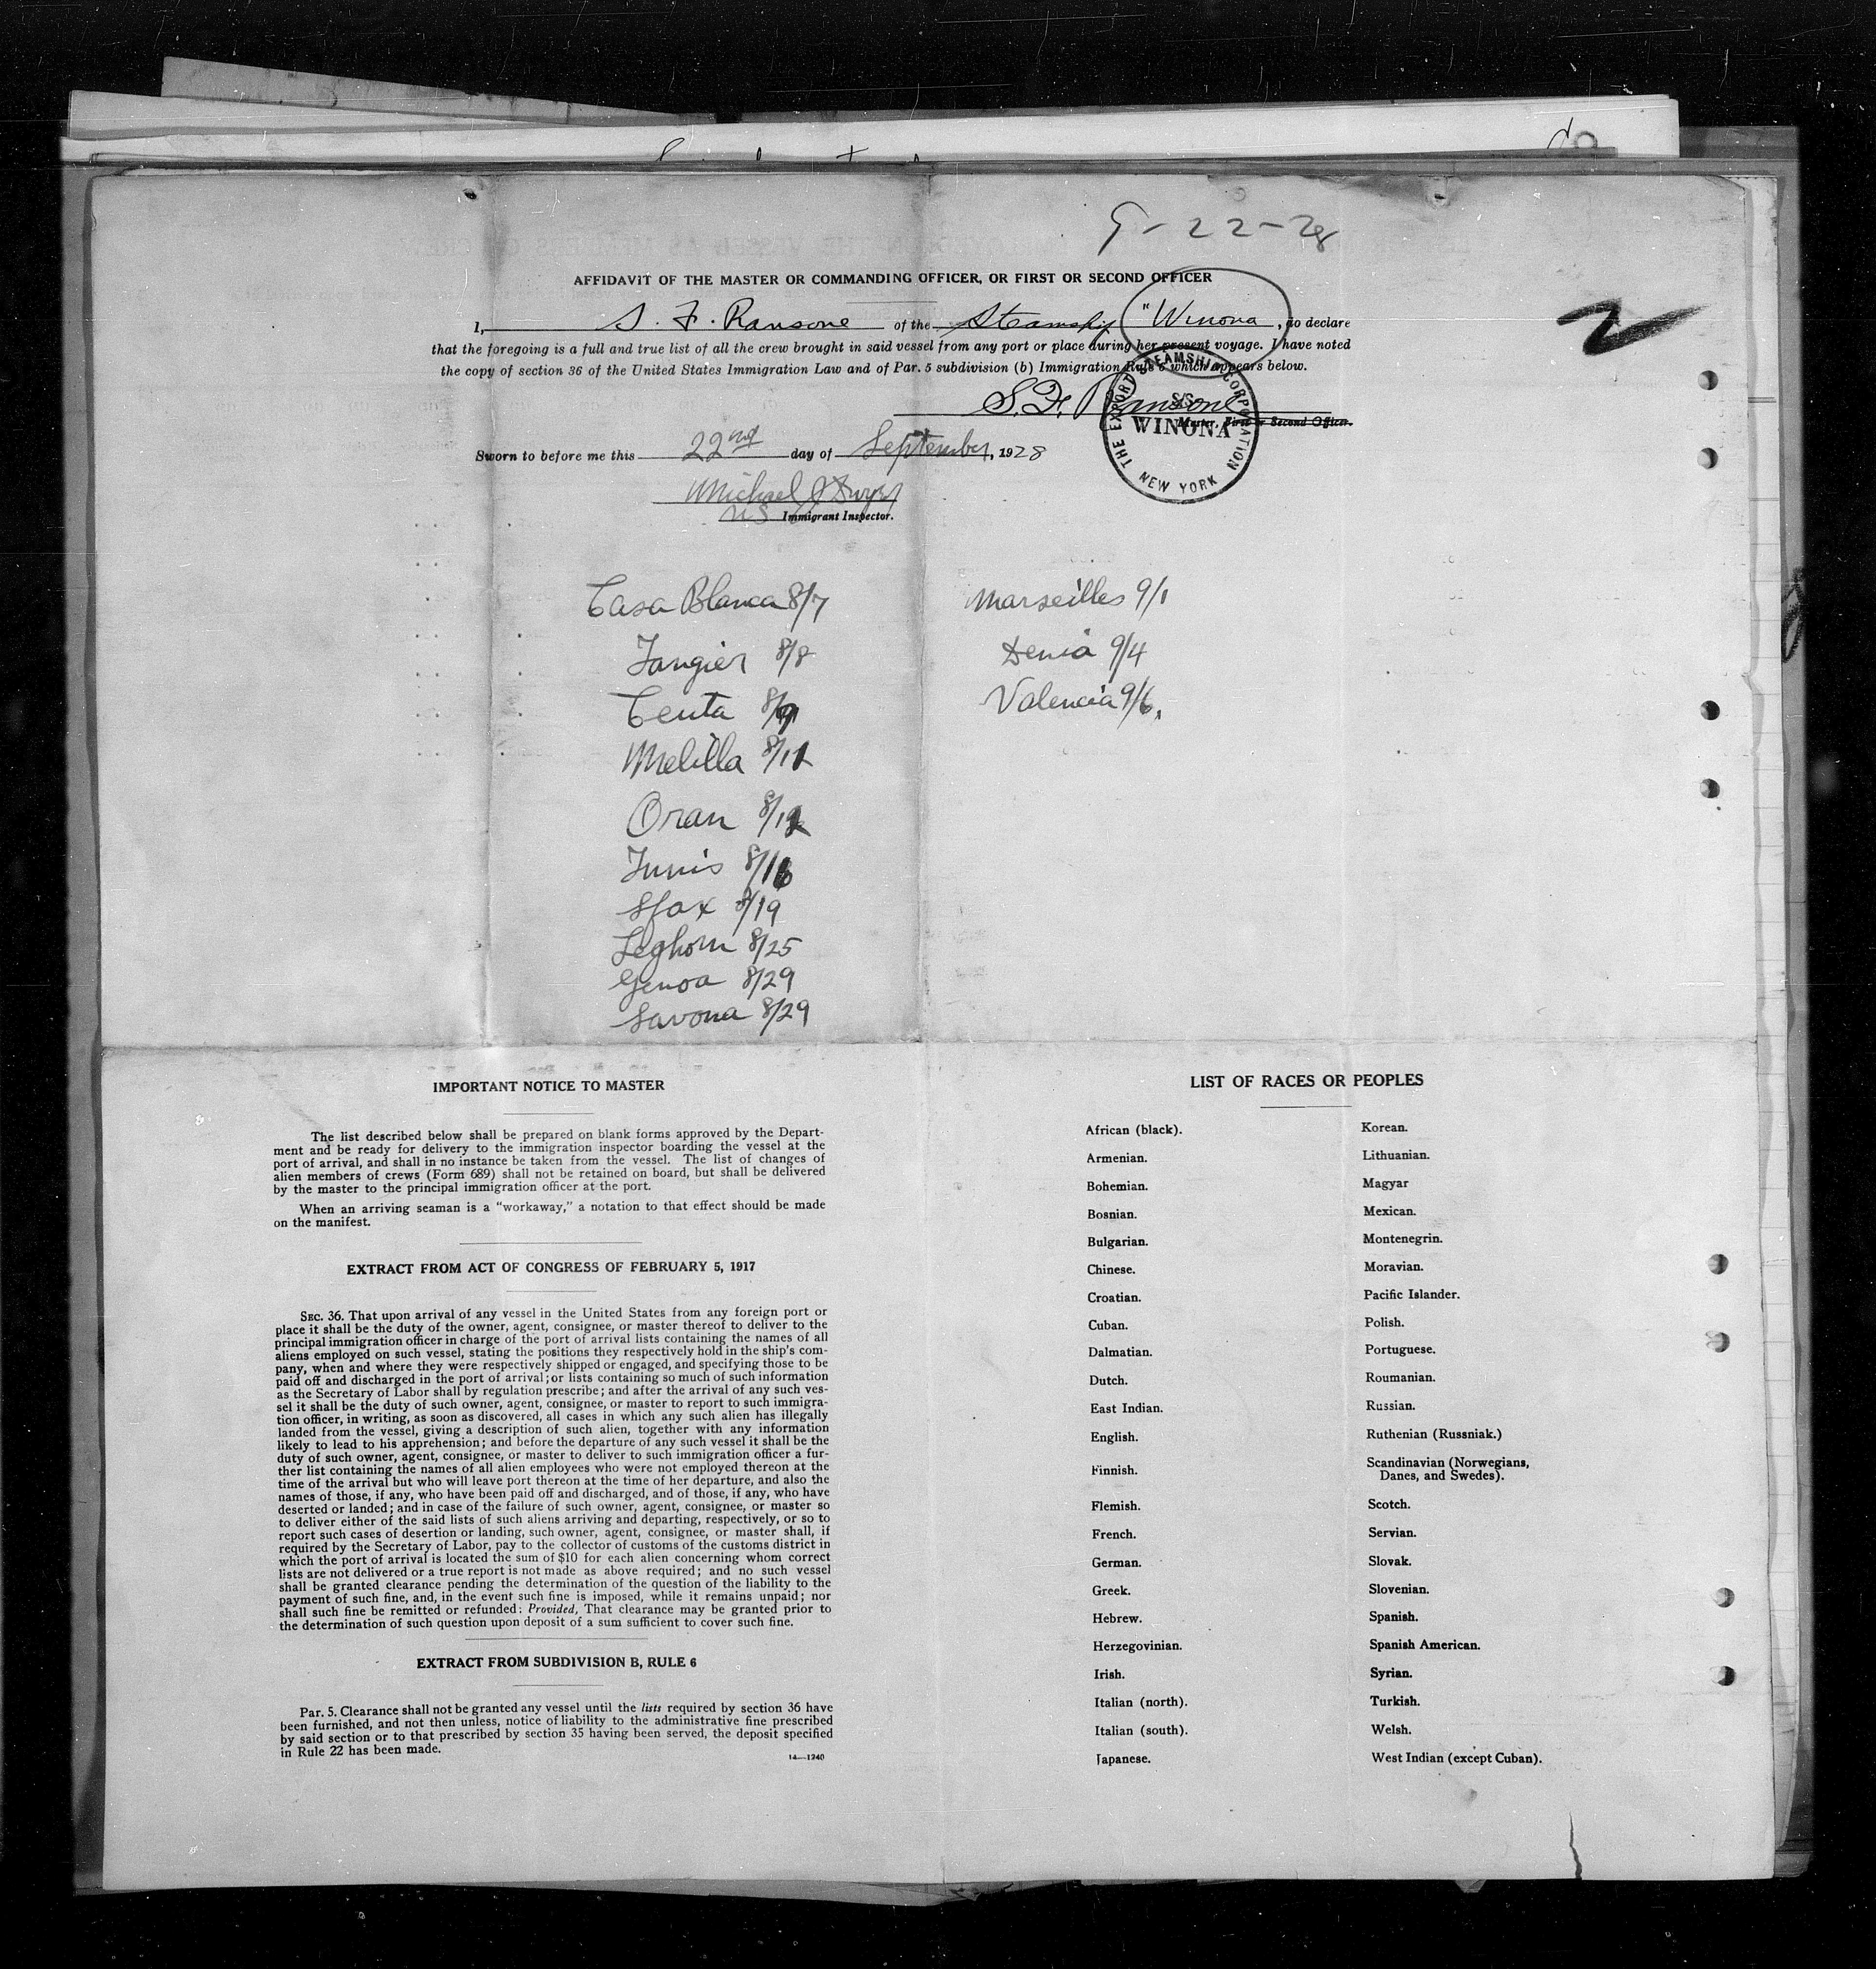 9-22-28
AFFIDAVIT OF THE MASTER OR COMMANDING OFFICER, OR FIRST OR SECOND OFFICER
I, S. F. Ransone of the Steamship "Winona, do declare
that the foregoing is a full and true list of all the crew brought in said vessel from any port or place during her present voyage. I have noted
the copy of section 36 of the United States Immigration Law and of Par. 5 subdivision (b) Immigration Rule 6 which appears below.
2
S. F. Ransone
Master, First or Second Officer.
THE EXPORT STEAMSHIP CORPORATION
S/S
WINONA
NEW YORK
Sworn to before me this 22nd day of September, 1928
Michael
US Immigrant Inspector.
Casa Blanca 8/7
Tangier 8/8
Ceuta 8/9
Melilla 8/11
Oran 8/12
Tunis 8/16
Sfax 8/19
Leghorn 8/25
Genoa 8/29
Savona 8/29
Marseilles 9/1
Denia 9/4
Valencia 9/6.
IMPORTANT NOTICE TO MASTER
The list described below shall be prepared on blank forms approved by the Depart-
ment and be ready for delivery to the immigration inspector boarding the vessel at the
port of arrival, and shall in no instance be taken from the vessel. The list of changes of
alien members of crews (Form 689) shall not be retained on board, but shall be delivered
by the master to the principal immigration officer at the port.
When an arriving seaman is a "workaway," a notation to that effect should be made
on the manifest.
EXTRACT FROM ACT OF CONGRESS OF FEBRUARY 5, 1917
SEC. 36. That upon arrival of any vessel in the United States from any foreign port or
place it shall be the duty of the owner, agent, consignee, or master thereof to deliver to the
principal immigration officer in charge of the port of arrival lists containing the names of all
aliens employed on such vessel, stating the positions they respectively hold in the ship's com-
pany, when and where they were respectively shipped or engaged, and specifying those to be
paid off and discharged in the port of arrival; or lists containing so much of such information
as the Secretary of Labor shall by regulation prescribe; and after the arrival of any such ves-
sel it shall be the duty of such owner, agent, consignee, or master to report to such immigra-
tion officer, in writing, as soon as discovered, all cases in which any such alien has illegally
landed from the vessel, giving a description of such alien, together with any information
likely to lead to his apprehension; and before the departure of any such vessel it shall be the
duty of such owner, agent, consignee, or master to deliver to such immigration officer a fur-
ther list containing the names of all alien employees who were not employed thereon at the
time of the arrival but who will leave port thereon at the time of her departure, and also the
names of those, if any, who have been paid off and discharged, and of those, if any, who have
deserted or landed; and in case of the failure of such owner, agent, consignee, or master so
to deliver either of the said lists of such aliens arriving and departing, respectively, or so to
report such cases of desertion or landing, such owner, agent, consignee, or master shall, if
required by the Secretary of Labor, pay to the collector of customs of the customs district in
which the port of arrival is located the sum of $10 for each alien concerning whom correct
lists are not delivered or a true report is not made as above required; and no such vessel
shall be granted clearance pending the determination of the question of the liability to the
payment of such fine, and, in the event such fine is imposed, while it remains unpaid; nor
shall such fine be remitted or refunded: Provided, That clearance may be granted prior to
the determination of such question upon deposit of a sum sufficient to cover such fine.
EXTRACT FROM SUBDIVISION B, RULE 6
Par. 5. Clearance shall not be granted any vessel until the lists required by section 36 have
been furnished, and not then unless, notice of liability to the administrative fine prescribed
by said section or to that prescribed by section 35 having been served, the deposit specified
in Rule 22 has been made.
14—1240
LIST OF RACES OR PEOPLES
African (black).
Armenian.
Bohemian.
Bosnian.
Bulgarian.
Chinese.
Croatian.
Cuban.
Dalmatian.
Dutch.
East Indian.
English.
Finnish.
Flemish.
French.
German.
Greek.
Hebrew.
Herzegovinian.
Irish.
Italian (north).
Italian (south).
Japanese.
Korean.
Lithuanian.
Magyar
Mexican.
Montenegrin.
Moravian.
Pacific Islander.
Polish.
Portuguese.
Roumanian.
Russian.
Ruthenian (Russniak.)
Scandinavian (Norwegians,
Danes, and Swedes).
Scotch.
Servian.
Slovak.
Slovenian.
Spanish.
Spanish American.
Syrian.
Turkish.
Welsh.
West Indian (except Cuban).